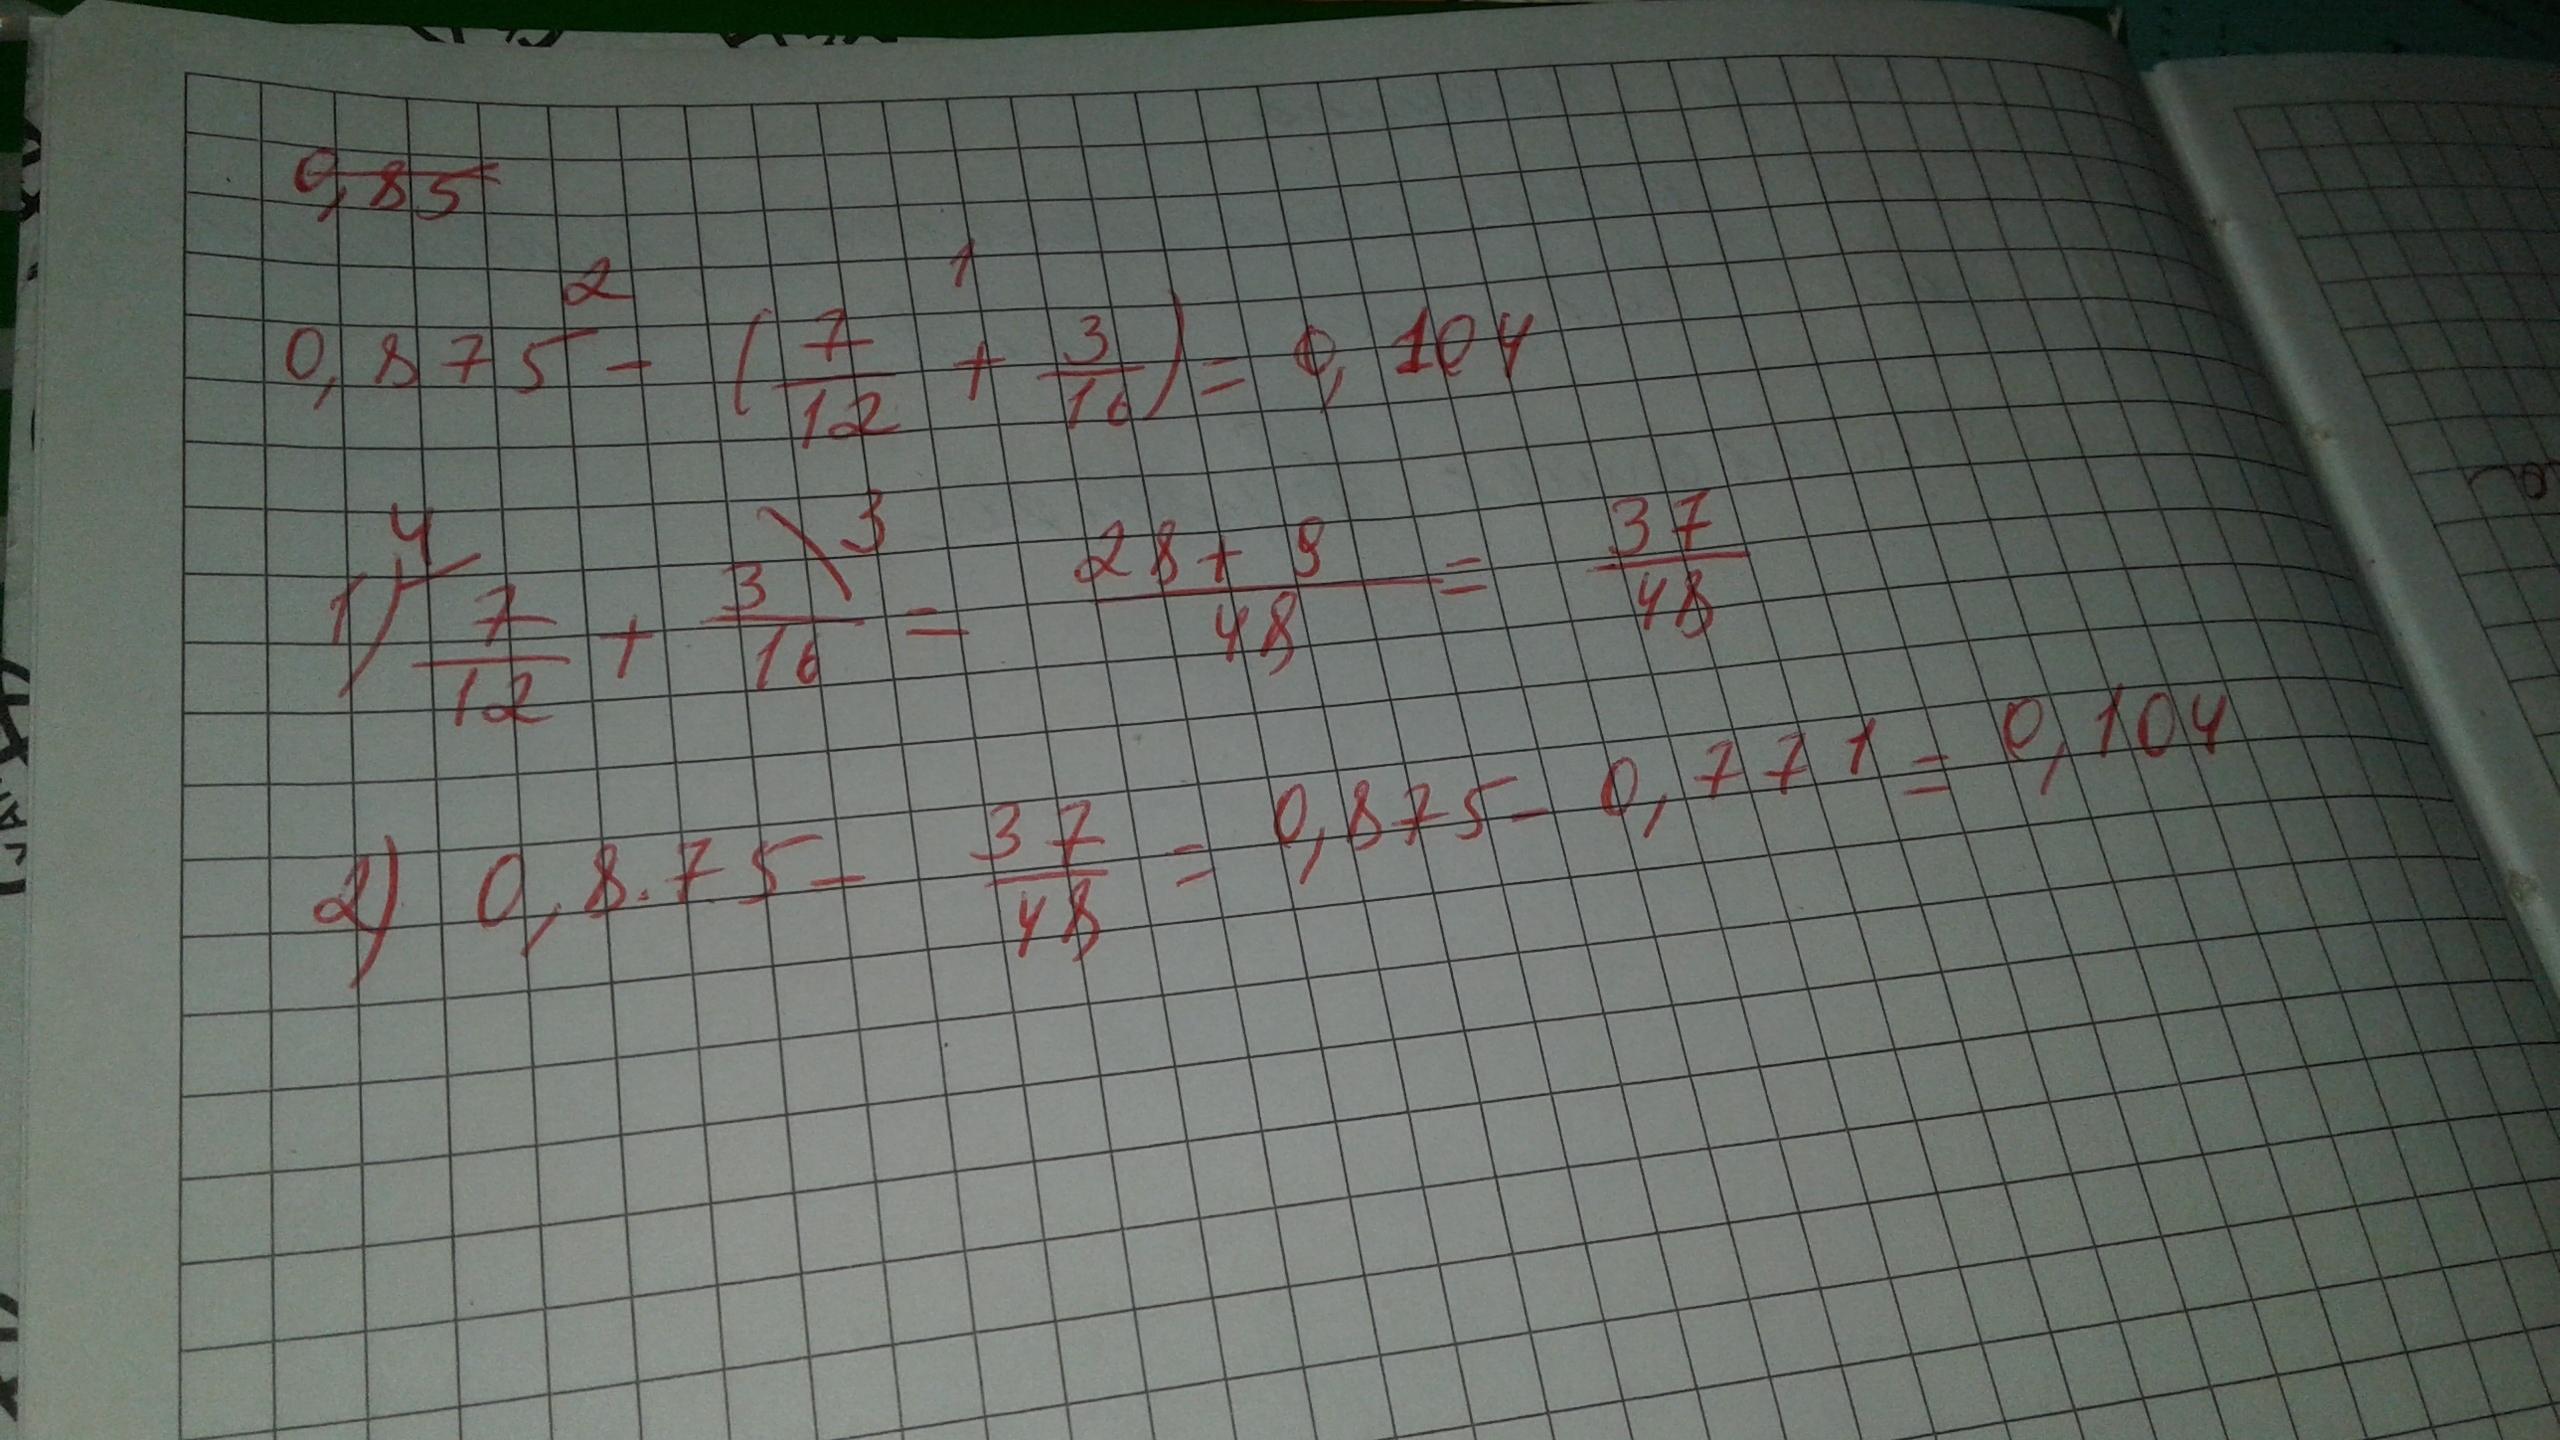 0,85
2 1
0,875 - (7/12 + 3/16) = 0,104
1) 4 7/12 + 3/16 \3 = 28+9/48 = 37/48
2) 0,8.75 - 37/48 = 0,875 - 0,771 = 0,104